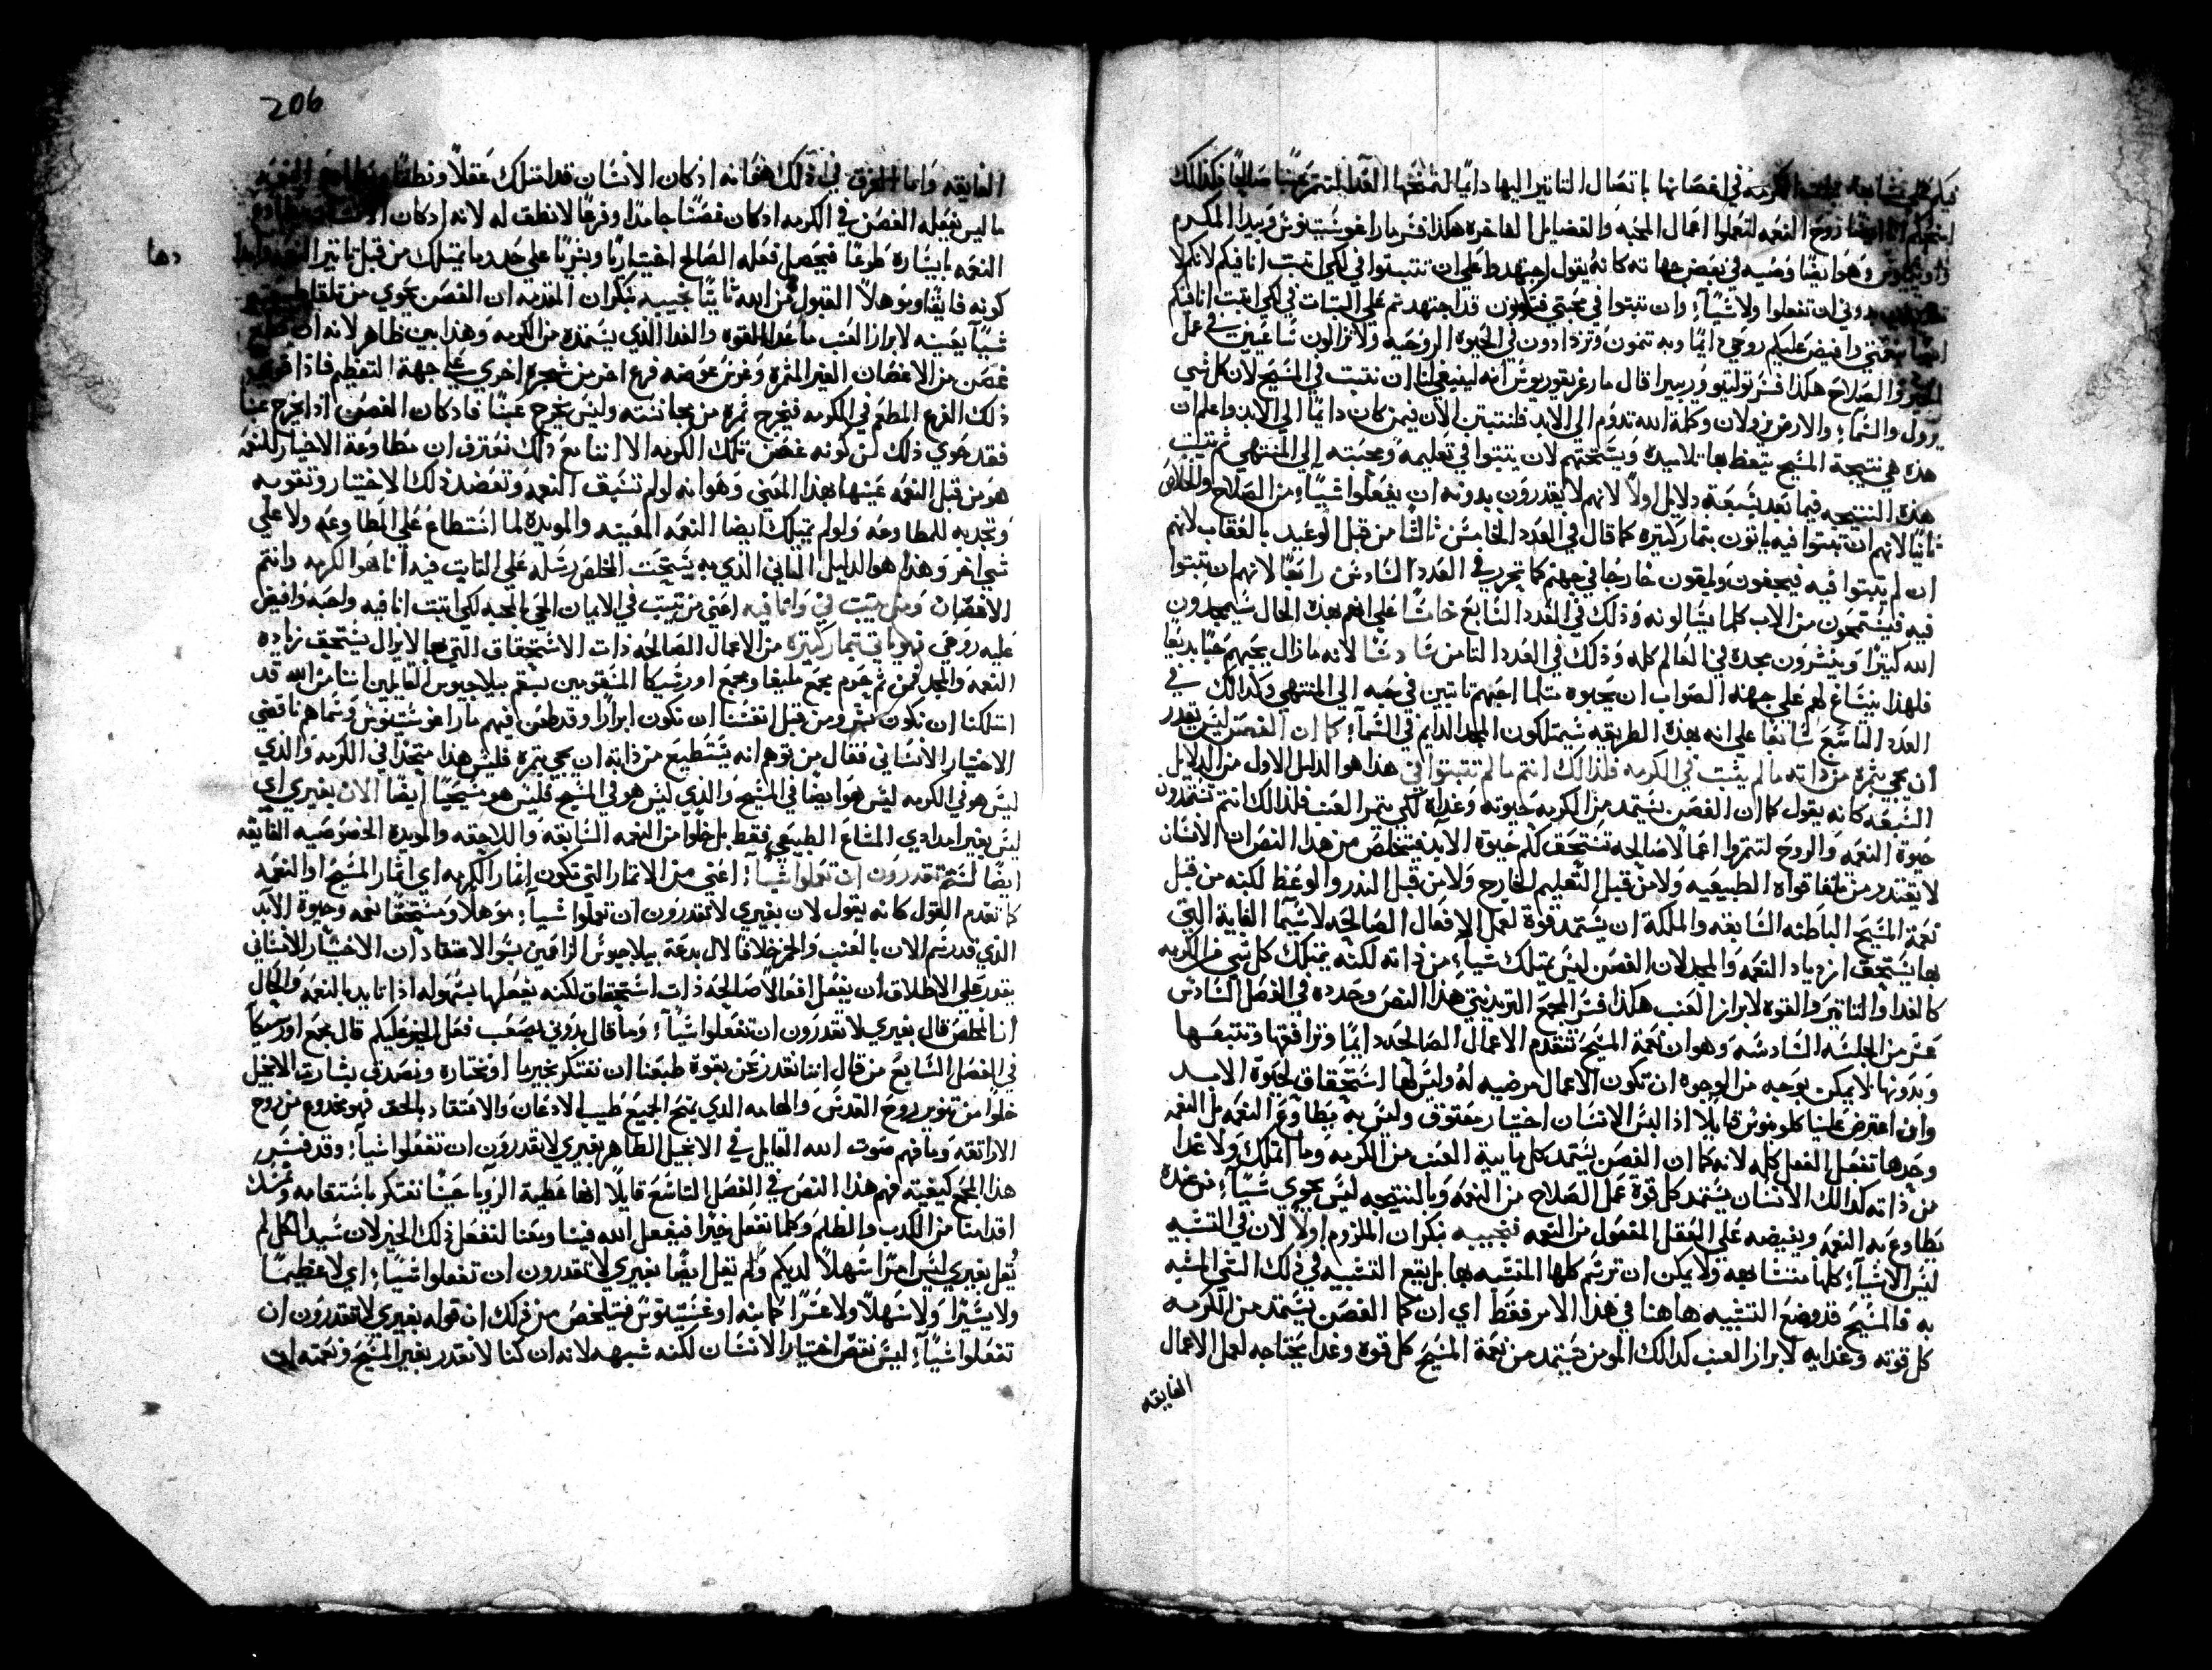 في اغصانها باتصال التاتير اليها دايمًا لتمنحها الغدا لتتمر عنبًا فكذلك
روح النعمه لتعملوا اعمال المحبه والفضايل الفاخره هكذا فسر مار اغوستينوس وبيدا المكرم
وهو ايضًا وصيه في بعض جهاته كانه يقول اجتهد على ان تتبتوا في لكي اتبت انا فيكم لانكم لا
بدوني ان تفعلوا ولا شياً وان تبتوا في محبتي فتكونون قد اجتهدتم على التبات في لكي اتبت انا فيكم
وافيض عليكم روحي دايمًا وبه تنمون وتزدادون في الحيوة الروحيه ولا تزالون ساعيين في عمل
الخير والصلاح هكذا فسر قال مار غريغوريوس انه لينبغي لنا ان نتبت في المسيح لان كل شي
يزول والسماء والارض يزولان وكلمة الله تدوم الى الابد فلنتبتن الان فيمن كان دايمًا الى الابد واعلم ان
هذه هي نتيجة المسيح يتعظ بها تلاميذه ويستحتهم لان يتبتوا في تعليمه ومحبته الى المنتهى تم يتبت
هذه النتيجه فيما بعد بسبعة دلايل اولاً لانهم لا يقدرون بدونه ان يفعلوا شياً من الصلاح والخلاص
تانيًا لانهم ان تبتوا فيه ياتون بتمار كتيره كما قال في العدد الخامس تالتًا من قبل الوعيد بالعقاب لانهم
ان لم يتبتوا فيه فيجفون ويلقون خارجًا في جهنم كما تحرر في العدد السادس رابعًا لانهم ان يتبتوا
فيه فيستمحون من الاب كلما يسالونه وذلك في العدد السابع خامسًا على انهم بهذه الحال سيمجدون
الله كتيرًا وينشرون مجده في العالم كله وذلك في العدد التامن سادسًا لانه ما زال يحبهم حبًا بديعًا
فلهذا ينساغ لهم على جهة الصواب ان يحبوه متلما احبهم تابتين في حبه الى المنتهى وكذلك في
العدد التاسع سابعًا على انه بهذه الطريقه سيمتلكون المجد الدايم في السماء كما ان الغصن ليس يقدر
ان يجي بتمره من ذاته ما لم يتبت في الكرمه فلذالك انتم ما لم تتبتوا في هذا هو الدليل الاول من الدلايل
السبعه كانه يقول كما ان الغصن يستمد من الكرمه حيوته وغداه لكي يتمر العنب فلذالك انتم تستمدون
حيوة النعمه والروح لتتمروا اعمالاً صالحه تستحق لكم حيوة الابد فيتخلص من هذا النص ان الانسان
لا يقتدر من تلقا قواه الطبيعيه ولا من قبل التعليم الخارج ولا من قبل الندر والوعظ لكنه من قبل
نعمة المسيح الباطنه السابقه والملكة ان يستمد قوة لعمل الافعال الصالحه لا سيما الغاية التي
بها يستحق ازدياد النعمه والمجد لان الغصن ليس يمتلك شياً من ذاته لكنه يمتلك كل شي من الكرمه
كالغدا والتاتير والقوه لابراز العنب هكذا فسر المجمع التريدنتيني هذا النص وحدده في الفصل السادس
عشر من الجلسه السادسه وهو ان نعمة المسيح تتقدم الاعمال الصالحه دايمًا وترافقها وتتبعها
وبدونها لا يمكن بوجه من الوجوه ان تكون الاعمال مرضيه له وليس لها استحقاق لحيوة الابد
وان اعترض علينا كلوينوس قايلاً اذا ليس الانسان اختيار معتوق وليس به يطاوع النعمه بل النعمه
وحدها تفعل الفعل كله لانه كما ان الغصن يستمد كل مابية العنب من الكرمه وما امتلك ولا غدا
من ذاته كذالك الانسان يستمد كل قوة عمل الصلاح من النعمه وبالنتيجه ليس يحوي شياً من عنده
يطاوع به النعمه ويفيضه على العقل المفعول من النعمه فنجيبه بنكران الملزوم اولاً لان في التشبيه
ليس الاشياء كلها متشابهه ولا يمكن ان ترسم كلها المتشبه بها بل يقع التشبيه في ذلك الشي المشبه
به فالمسيح قد وضع التشبيه هاهنا في هذا الامر فقط اي ان كما الغصن يستمد من الكرمه
كل قوته وغدايه لابراز العنب كذالك المومن يستمد من نعمة المسيح كل قوه وغدا يحتاجه لعمل الاعمال
الفايقه
206
الفايقه وانما الفرق في ذلك هو انه اذ كان الانسان قد امتلك عقلاً ونطقًا النعمه
ما ليس يفعله الغصن في الكرمه اذ كان غصنًا جامدًا وفرعًا لا نطق له لانه اذ كان الانسان يطاوع
النعمه بايساره طوعًا فيحصل فعله الصالح اختياريًا وبشريًا على حد ما يمتلك من قبل تاتير النعمه
دها
كونه فايقًا وموهلاً القبول من الله تانيًا نجيبه بنكران المقدمه ان الغصن يحوي من تلقا طبيعته
شياً يعينه لابراز العنب ما عدا القوه والغدا الذي يستمده من الكرمه وهذا بين ظاهر لانه ان قطع
غصن من الاغصان الغير المتمره وغرس عوضه فرع اخر من شجره اخري على جهة التطعيم فاذا قوي
ذلك الفرع المطعم في الكرمه فيخرج تمره من مجانسته وليس يخرج عنبًا فاذ كان الغصن اذا يخرج عنبًا
فقد حوي ذلك من كونه غصن تلك الكرمه الا اننا مع ذلك نعترف ان مطاوعة الاختيار للنعمه
هو من قبل النعمه عينها بهذا المعني وهو انه لو لم تسبق النعمه وتعضد ذلك الاختيار وتقومه
وتجدبه للمطاوعه ولو لم يمتلك ايضا النعمه المعينه والمويده لما استطاع على المطاوعه ولا على
شي اخر وهذا هو الدليل التاني الذي به يستحت المخلص رسله على التبات فيه انا هو الكرمه وانتم
الاغصان ومن يتبت في وانا فيه اعني من يتبت في الايمان الحي المحبه لكي اتبت انا فيه واحبه وافيض
عليه روحي فهو ياتي بتمار كتيره من الاعمال الصالحه ذات الاستحقاق التي بها لا يزال يستحق زياده
النعمه والمجد فمن تم حرم مجمع مليفا ومجمع اورنسيكا المنفوميين ببيلاجيوس القايلين اننا من الله قد
امتلكنا ان نكون بشر ومن قبل انفسنا ان نكون ابرارًا وقد طعن فيهم مار اغوستينوس وسماهم ناقضي
الاختيار الانساني فقال من توهم انه يستطيع من ذاته ان يجي بتمره فليس هذا متحدًا في الكرمه والذي
ليس هو في الكرمه ليس هو ايضًا في المسيح والذي ليس هو في المسيح فليس هو مسيحيًا ايضًا الان بغيري اي
ليس بغير امدادي المشاع الطبيعي فقط بل خلوًا من النعمه السابقه واللاحقه والمويده الخصوصيه الفايقه
ايضًا لستم تقدرون ان تعملوا شياً اعني من الاتمار التي تكون اتمار الكرمه اي اتمار المسيح او النعمه
كما تقدم القول كانه يقول لان بغيري لا تقدرون ان تعملوا شياً موهلاً ومستحقًا نعمه وحيوة الابد
الذي قد رسم الان بالعنب والخمر خلافًا لال بدعة بيلاجيوس الزاعمين بسو الاعتقاد ان الاختيار الانساني
يقدر على الاطلاق ان يفعل افعالاً صالحه ذات استحقاق لكنه يفعلها بسهوله اذا تايد بالنعمه والحال
ان المخلص قال بغيري لا تقدرون ان تفعلوا شياً وما قال بدوني يصعب فعل الخير عليكم قال مجمع اورنسيكا
في الفصل السابع من قال اننا نقدر نحن بقوة طبعنا ان نفتكر بخير ما او نختاره ونصدق بشارت الانجيل
خلوًا من تنوير روح القدس والهامه الذي يمنح الجميع طيب الادعان والاعتقاد بالحق فهو مخدوع من روح
الاراتقه وما فهم صوت الله القايل في الانجيل الطاهر بغيري لا تقدرون ان تفعلوا شياً وقد فسر
هذا المجمع كيفية فهم هذا النص في الفصل التاسع قايلاً انها عطية الرويا حينما نفتكر باستقامه ونمسك
اقدامنا من الكدب والظلم وكلما نفعل خيرًا فيفعل الله فينا ومعنا لنفعل ذلك الخير لان سيد الكل لم
يقل بغيري ليس امرًا سهلاً لديكم ولم يقل ايضًا بغيري لا تقدرون ان تفعلوا شياً اي لا عظيمًا
ولا يسيرًا ولا سهلاً ولا عسرًا كما بينه اوغسيتنوس فيتلخص من ذلك ان قوله بغيري لا تقدرون ان
تفعلوا شياً ليس نقض اختيار الانسان لكنه شبهه لانه ان كنا لا نقدر بغير المسيح ونعمته ان